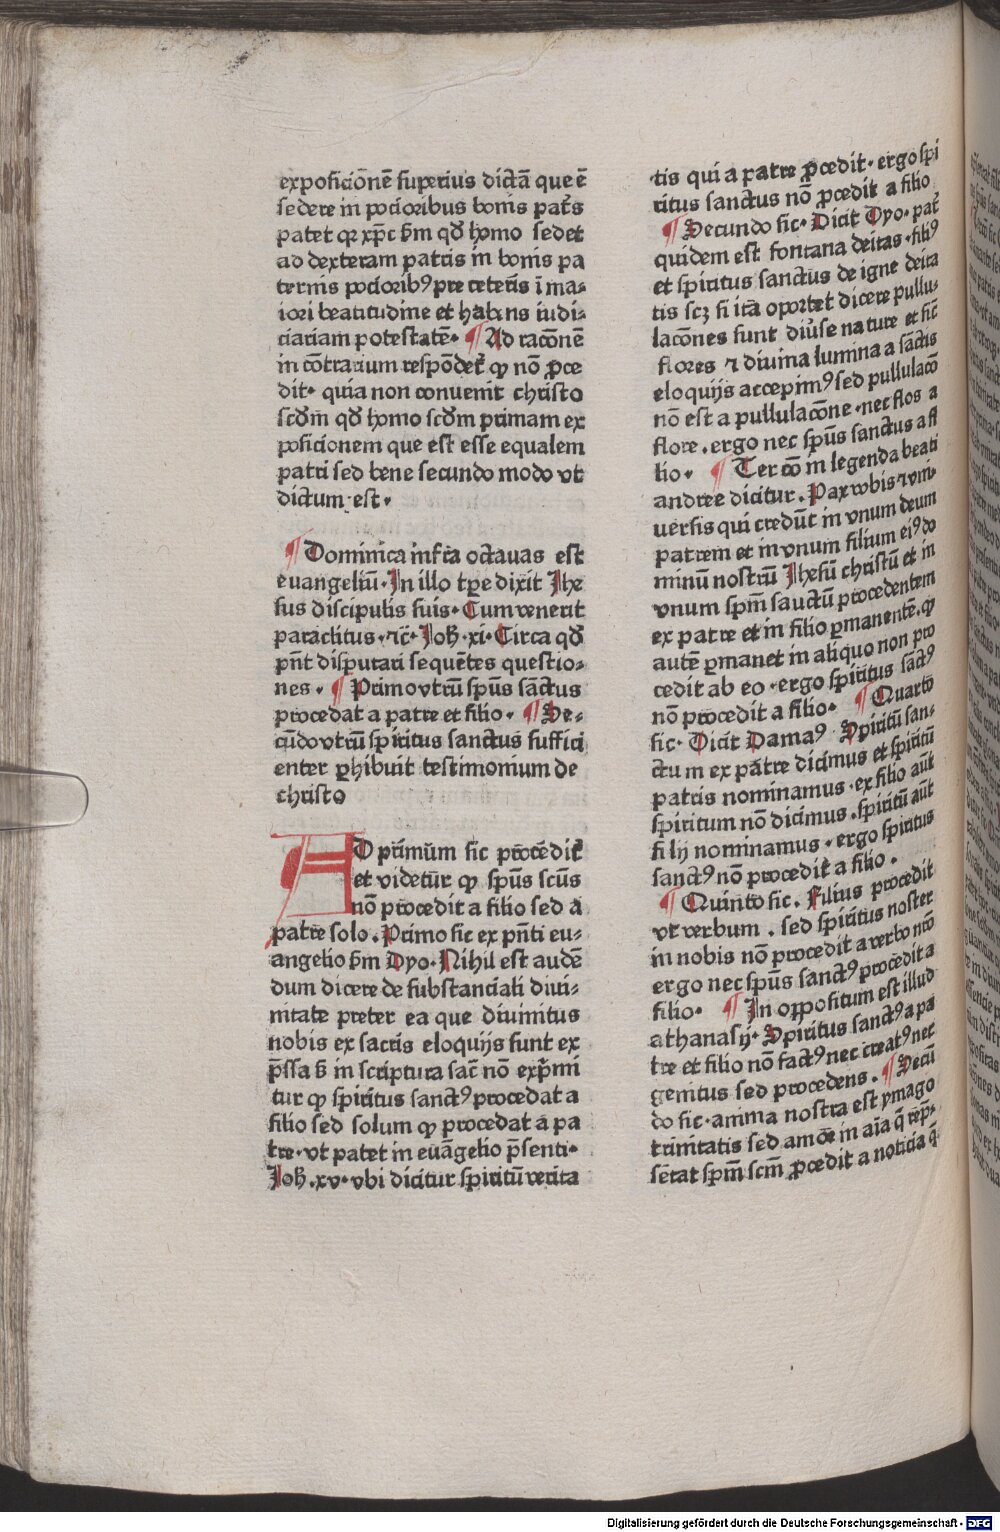 expoſicionē ſuperius dictā que ē
ſedere in pocioribus bonis pat̄s
patet qꝛ xp̄c ẜm qđ homo ſedet
ad dexteram patris in bonis pa
ternis pocioribꝰ pre ceteris ī ma⸗
iori beatitudine et habens iudi⸗
ciariam poteſtatē· ¶ Ad racōnē
in cōtrarium reſpōdet̄ ꝙ nō ꝓce
dit· quia non conuenit chriſto
ſcd̄m qđ homo ſcd̄m primam ex
poſicionem que eſt eſſe equalem
patri ſed bene ſecundo modo vt
dictum eſt·
¶ Dominica infra octauas eſt
euangeliū· In illo tꝑe dixit Jhe
ſus diſcipulis ſuis· Cum venerit
paraclitus ·⁊c̄· Joh̄·xi· Circa qđ
pn̄t diſputari ſequētes queſtio⸗
nes · ¶ Primo vtrū ſpūs ſāctus
procedat a patre et filio · ¶ Se⸗
cūdo vtrū ſpiritus ſanctus ſuffici
enter ꝑhibuit teſtimonium de
chriſto
AD primum ſic procedit̄
et videtur ꝙ ſpūs ſcūs
nō procedit a filio ſed a
patre ſolo . Primo ſic ex pn̄ti eu⸗
angelio ẜm Dyo· Nihil eſt audē
dum dicere de ſubſtanciali diui⸗
nitate preter ea que diuinitus
nobis ex ſacris eloquijs ſunt ex
p̄ſſa ẜ in ſcriptura ſac̄ nō exp̄mi
tur ꝙ ſpiritus ſanctꝰ procedat a
filio ſed ſolum ꝙ procedat a pa
tre· vt patet in euāgelio p̄ſenti·
Joh̄·xv· vbi dicitur ſpiritū verita
tis qui a patre ꝓcedit· ergo ſpi
ritus ſanctus nō ꝓcedit a filio
¶ Secundo ſic· Dicit Dyo· pat̄
quidem eſt fontana deitas ·filiꝰ
et ſpiritus ſanctus de igne deita
tis ſcꝫ ſi ita oportet dicere pullu⸗
lacōnes ſunt diu̅ſe nature et ſic̄
flores ⁊ diuina lumina a ſāctis
eloquijs accepimꝰ ſed pullulacō
nō eſt a pullulacōne ·nec flos a
flore . ergo nec ſpūs ſanctus a fi
lio · ¶ Tercō in legenda beati
andree dicitur . Pax vobis ⁊ vni⸗
uerſis qui credūt in vnum deum
patrem et in vnum filium eiꝰ do
minū noſtrū Jheſū chriſtū et in
vnum ſpm̄ ſauctū procedentem
ex patre et in filio ꝑmanentē. ꝙ
autē ꝑmanet in aliquo non pro
cedit ab eo · ergo ſpiritus ſāctꝰ
nō procedit a filio· ¶ Quarto
ſic· Dicit Damaꝰ Spiritū ſan⸗
ctum ex patre dicimus et ſpiritū
patris nominamus · ex filio aūt
ſpiritum nō dicimus . ſpiritū aūt
filij nominamus · ergo ſpiritus
ſanctꝰ nō procedit a filio .
¶ Quinto ſic. Filius procedit
vt verbum . ſed ſpiritus noſter
in nobis nō procedit a verbo nr̄o
ergo nec ſpūs ſanctꝰ procedit a
filio· ¶ In oppoſitum eſt illud
athanaſij· Spiritus ſanctꝰ a pa
tre et filio nō factꝰ nec creatꝰ nec
genitus ſed procedens . ¶ Secū
do ſic· anima noſtra eſt ymago
trinitatis ſed amor in aīa q̄ rep̄⸗
ſētat ſpm̄ ſcm̄ ꝓcedit a noticia q̄
Digitalisierung gefördert durch die Deutsche Forschungsgemeinschaft - DFG